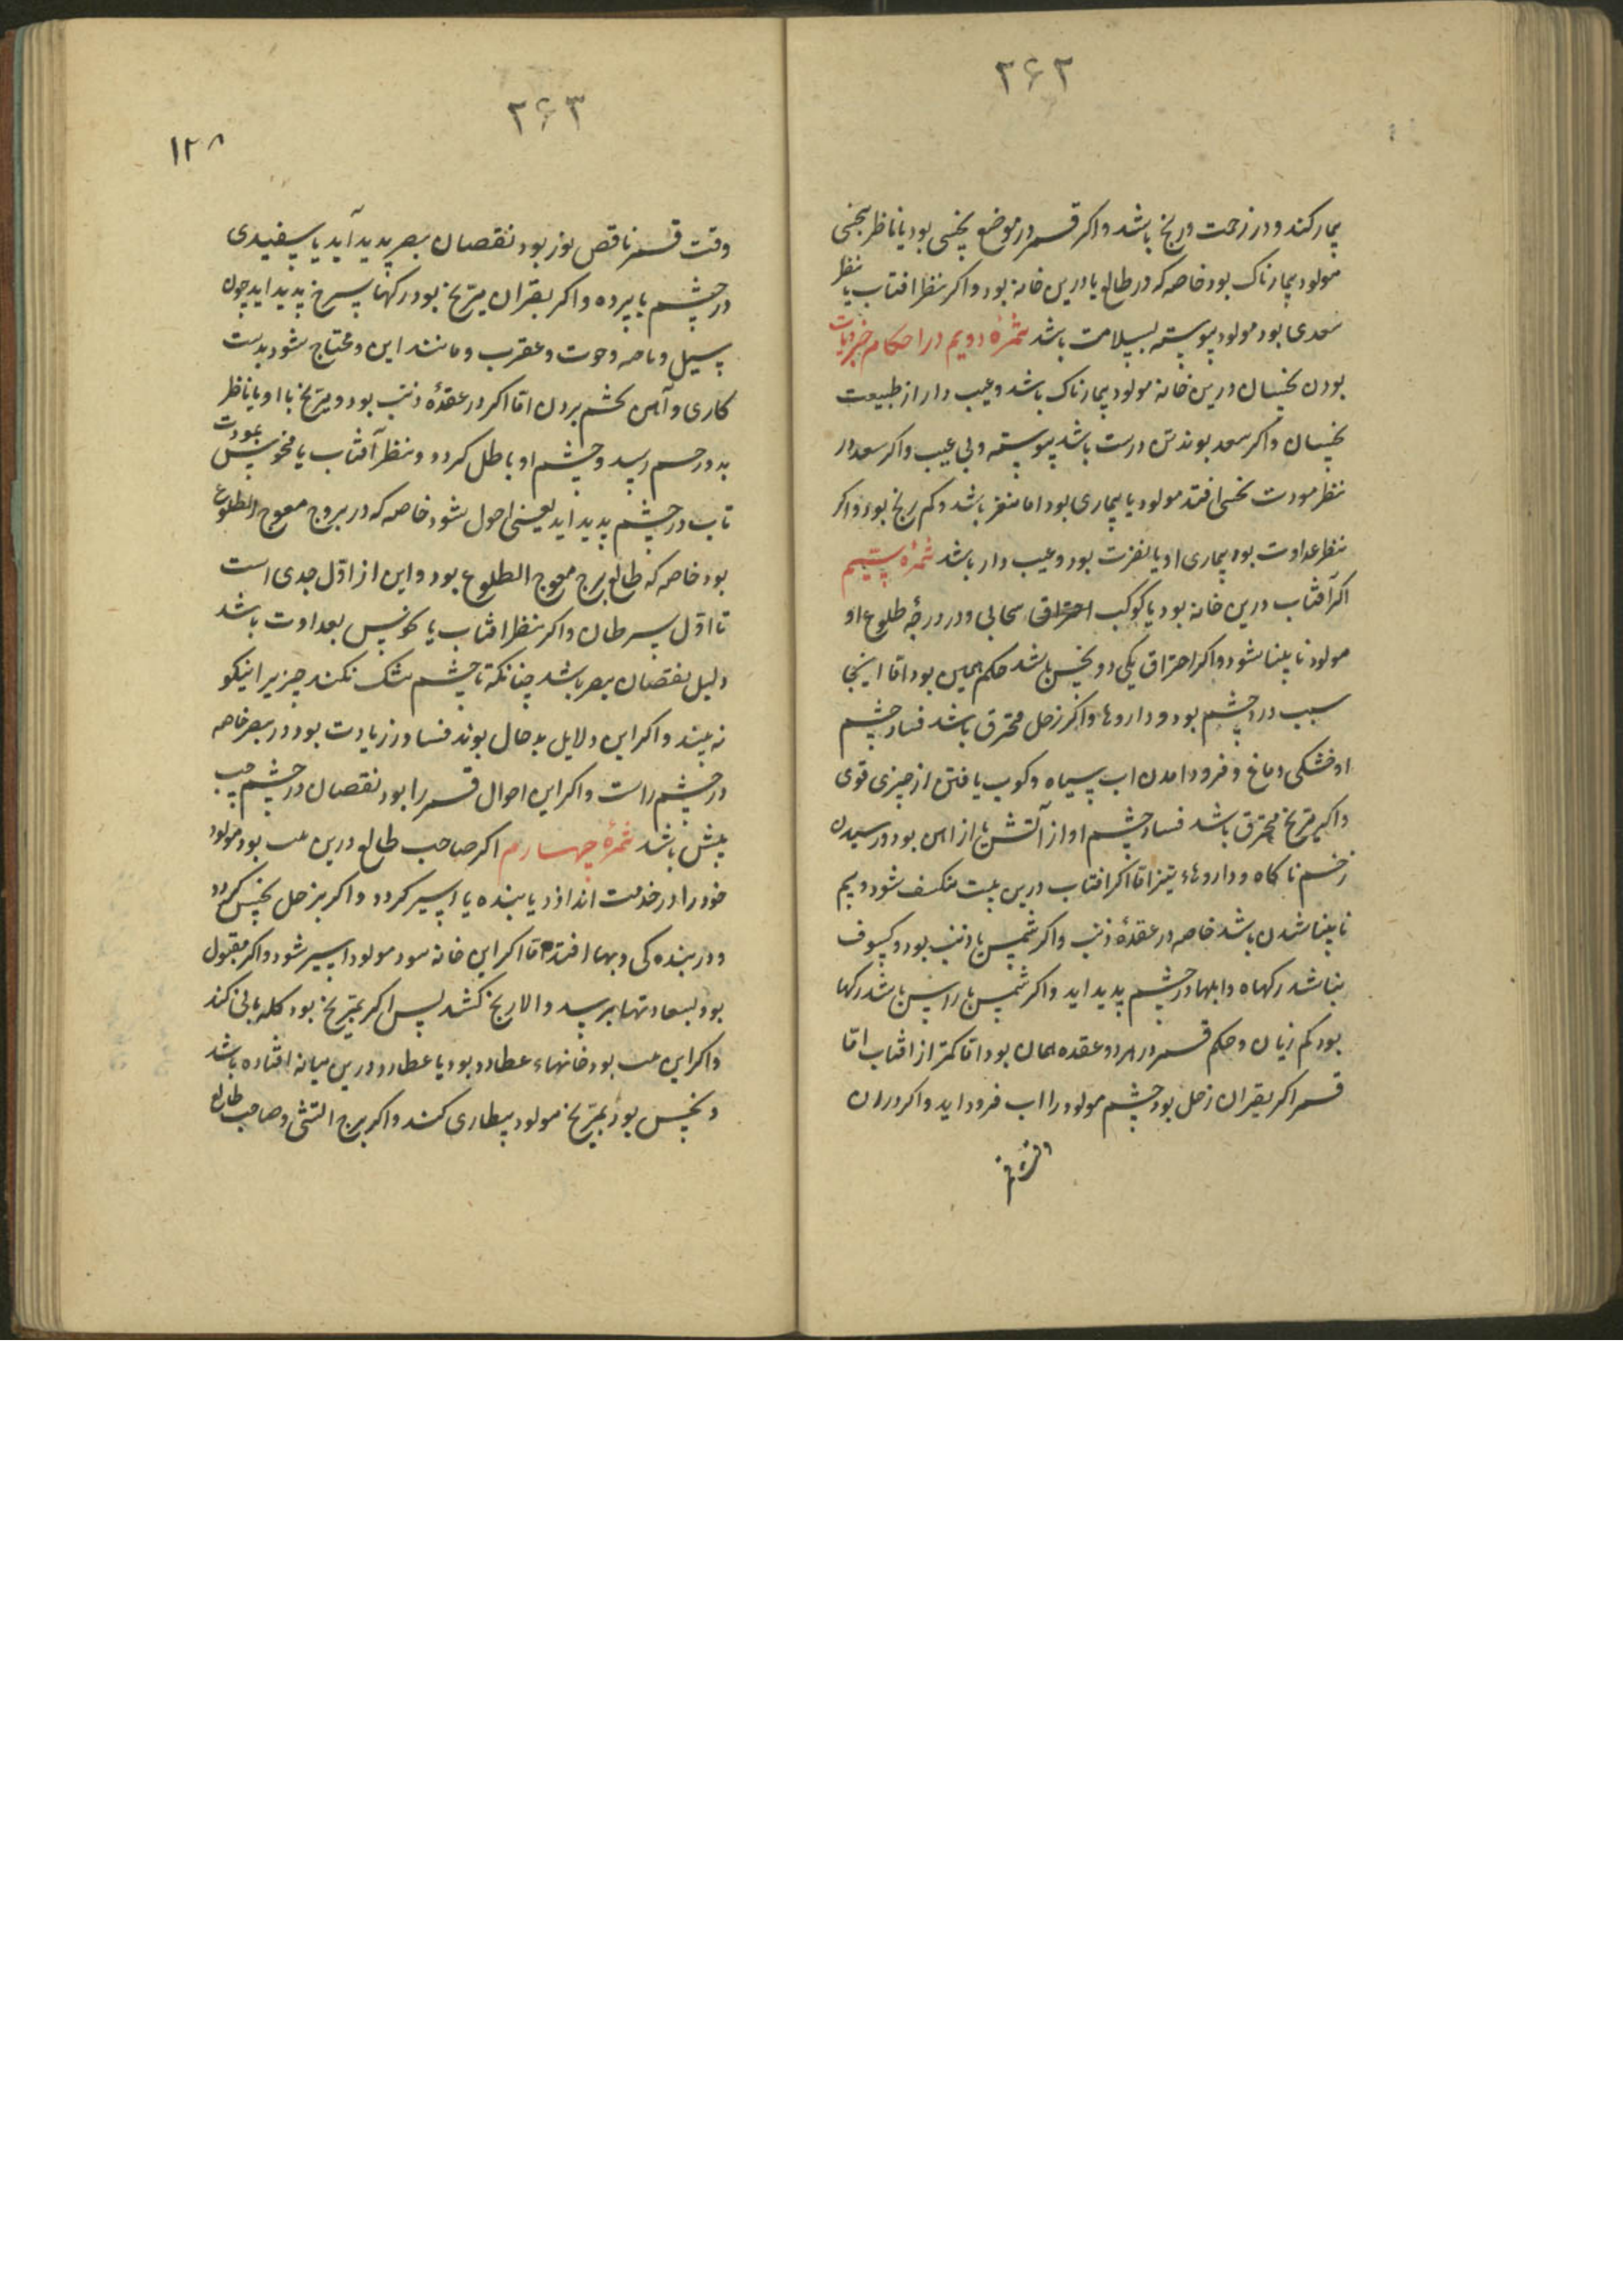 ۲۶۲
بیمار کند و در زحمت و رنج باشد و اکر قمر در موضع نحسی بود یا ناظر بنحسی
مولود بیمارناک بود خاصه که در طالع یا درین خانه بود و اکر بنظر افتاب یا بنظر
سعدی بود مولود پیوسته بسلامت باشد ثمرهٔ دویم در احکام جزویات
بودن نحسان درین خانه مولود بیمارناک باشد و عیب دار از طبیعت
نحسان و اکر سعد بوند تن درست باشد پیوسته و بی عیب و اکر سعد در
نظر مودت نحس افتد مولود با بیماری بود اما منفر باشد و کم رنج بود و اکر
بنظر عداوت بود بیماری او با نفرت بود و عیب دار باشد ثمرهٔ سیم
اکر آفتاب درین خانه بود یا کوکب احتراق سحابی و در درجهٔ طلوع او
مولود نابینا شود و اکر احتراق یکی دو نحس باشد حکم همین بود اما اینجا
سبب درد چشم بود و داروها و اکر زحل محترق باشد فساد چشم
او خشکی دماغ و فرود امدن اب سیاه و کوب یافتن از چیزی قوی
و اکر مریخ محترق باشد فساد چشم او از آتش یا از اهن بود و رسیدن
زخم ناکاه و داروهاء تیز اما اکر افتاب درین بیت منکسف شود و بیم
نابینا شدن باشد خاصه در عقدهٔ ذنب و اکر شمس با ذنب بود و کسوف
بنا شد رکهاه و ابلها در چشم پدید اید و اکر شمس با راس باشد رکها
بود کم زیان و حکم قمر در هر دو عقده همان بود اما کمتر از افتاب اما
قمر اکر بقران زحل بود چشم مولود را اب فرود اید و اکر در ان
وقت قمر
۲۶۳
۱۲۸
وقت قمر ناقص نور بود نقصان بصر پدید آید یا سفیدی
در چشم یا پرده و اکر بقران مریخ بود رکها سرخ پدید اید چون
سبل و ناصه و حوت و عقرب و مانند این و محتاج شود بدست
کاری و آهن بچشم بردن اما اکر در عقدهٔ ذنب بود و مریخ با او یا ناظر
بدو زخم رسد و چشم او باطل کردد و نظر آفتاب با نحوس بمودت
تاب در چشم پدید اید یعنی احول شود خاصه که در بروج معوج الطلوع
بود خاصه که طالع برج معوج الطلوع بود و این از اوّل جدی است
تا اوّل سرطان و اکر بنظر افتاب با نحوس بعداوت باشد
دلیل نقصان بصر باشد چنانکه تا چشم تنک نکند چیز را نیکو
نه بیند و اکر این دلایل بد حال بوند فساد زیادت بود در بصر خاصه
در چشم راست و اکر این احوال قمر را بود نقصان در چشم چپ
بیش باشد ثمرهٔ چهارم اکر صاحب طالع درین بیت بود مولود
خود را در خدمت اندازد یا بنده یا اسیر کردد و اکر بزحل نحس کردد
و در بنده کی دبها افتد اما اکر این خانه سود مولود اسیر شود و اکر مقبول
بود بسعادتها برسد و الا رنج کشد پس اکر بمریخ بود کله بانی کند
و اکر این بیت بود خانهاء عطارد بود یا عطارد درین میانه افتاده باشد
و نحس بود بمریخ مولود بیطاری کند و اکر برج اتشی و صاحب طالع